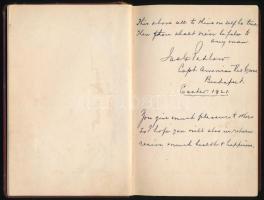 This above all to thine own self be true
Thou then shalt never be false to
any man
Jack Pedlow
Capt. American Red Cross
Budapest
Easter 1921.
You give much pleasure to others
So I hope you will also in return
receive much health & happiness.